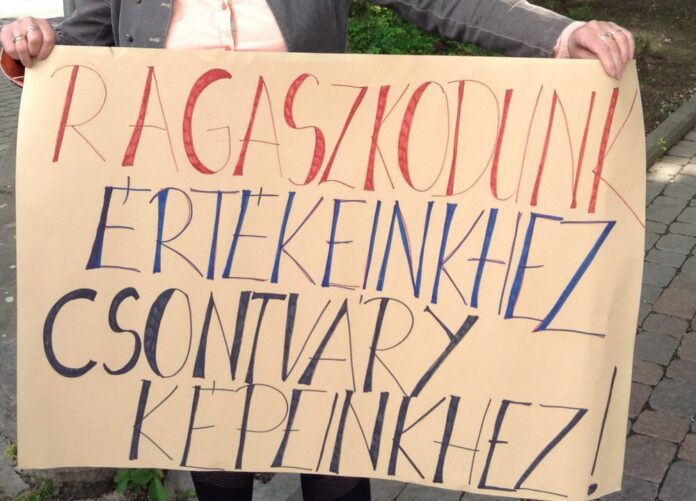 RAGASZKODUNK
ÉRTÉKEINKHEZ
CSONTVÁRY
KÉPEINKHEZ!